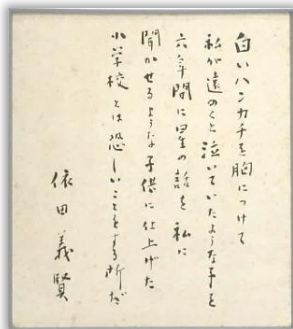 白いハンカチを胸につけて
私が遠のくと泣いていたような子を
六年間に星の話を私に
聞かせるような子供に仕上げた
小学校とは恐しいことをする所だ
依田義賢